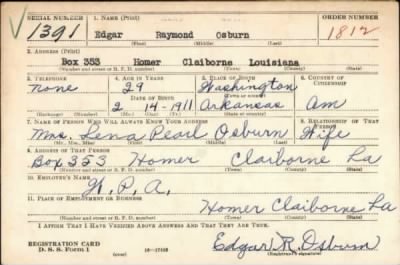 SERIAL NUMBER 1. NAME (Print) ORDER NUMBER
1391 Edgar Raymond Osburn 1812
(First) (Middle) (Last)
2. ADDRESS (Print)
Box 353 Homer Claiborne Louisiana
(Number and street or R. F. D. number) (Town) (County) (State)
3. TELEPHONE 4. AGE IN YEARS 5. PLACE OF BIRTH 6. COUNTRY OF CITIZENSHIP
none 29 Washington
DATE OF BIRTH (Town or county)
2 19 1911 Arkansas Am
(Exchange) (No.) (Mo.) (Day) (Yr.) (State or country)
7. NAME OF PERSON WHO WILL ALWAYS KNOW YOUR ADDRESS 8. RELATIONSHIP OF THAT PERSON
Mrs. Lena Pearl Osburn Wife
(Mr., Mrs., Miss) (First) (Middle) (Last)
9. ADDRESS OF THAT PERSON
Box 353 Homer Claiborne La
(Number and street or R. F. D. number) (Town) (County) (State)
10. EMPLOYER'S NAME
W. P. A.
11. PLACE OF EMPLOYMENT OR BUSINESS
Homer Claiborne La
(Number and street or R. F. D. number) (Town) (County) (State)
I AFFIRM THAT I HAVE VERIFIED ABOVE ANSWERS AND THAT THEY ARE TRUE.
REGISTRATION CARD
D. S. S. Form 1 16—17105 Edgar R. Osburn
(Registrant's signature)